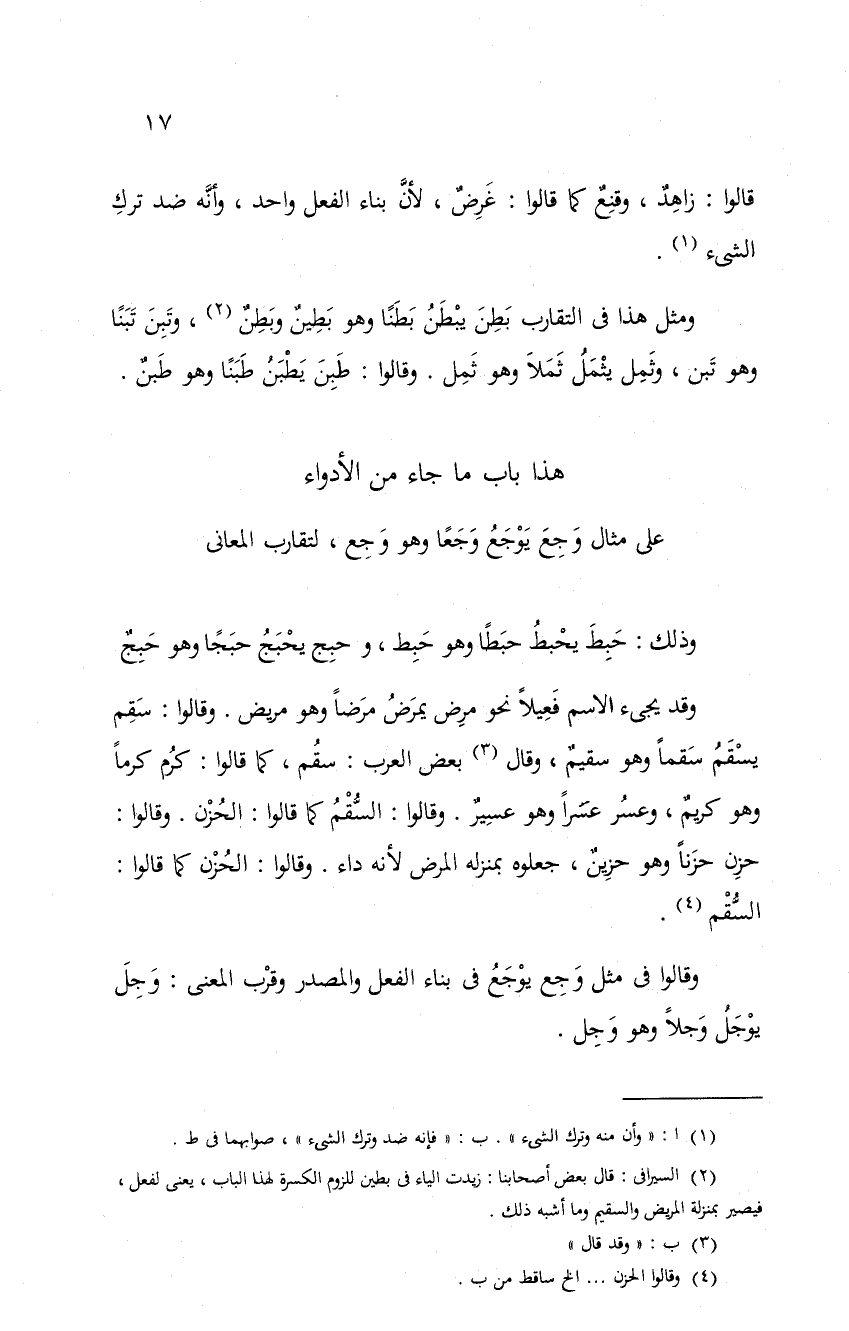 ١٧
قالوا : زاهِدٌ ، وقنِعٌ كما قالوا : غَرِضٌ ، لأنَّ بناء الفعل واحد ، وأنَّه ضد تركِ
الشىء (١) .
ومثل هذا فى التقارب بَطِنَ يبْطَنُ بَطَنًا وهو بَطِينٌ وبَطِنٌ (٢) ، وتَبِنَ تَبَنًا
وهو تَبن ، وثَمِل يثْمَلُ ثَمَلاً وهو ثَمِل . وقالوا : طَبِنَ يَطْبَنُ طَبَنًا وهو طَبنٌ .
هذا باب ما جاء من الأدواء
على مثال وَجِعَ يَوْجَعُ وَجَعًا وهو وَجِع ، لتقارب المعانى
وذلك : حَبِطَ يحْبطُ حبَطًا وهو حَبِط ، و حبِج يحْبَجُ حبَجًا وهو حَبِجٌ
وقد يجىء الاسم فَعِيلاً نحو مرِض يمرَضُ مرَضاً وهو مريض . وقالوا : سَقِم
يسْقَمُ سَقماً وهو سقيمٌ ، وقال (٣) بعض العرب : سقُم ، كما قالوا : كرُم كرماً
وهو كريمٌ ، وعسُر عسَراً وهو عسِيرٌ . وقالوا : السُّقْمُ كما قالوا : الحُزْن . وقالوا :
حزِن حزَناً وهو حزِينٌ ، جعلوه بمنزله المرض لأنه داء . وقالوا : الحُزْن كما قالوا :
السُّقْم (٤) .
وقالوا فى مثل وَجِع يوْجَعُ فى بناء الفعل والمصدر وقرْب المعنى : وَجِلَ
يوْجَلُ وَجلاً وهو وَجِل .
(١) ا : « وأن منه وترك الشىء » . ب : « فإنه ضد وترك الشىء » ، صوابهما فى ط .
(٢) السيرافى : قال بعض أصحابنا : زيدت الياء فى بطين للزوم الكسرة لهذا الباب ، يعنى لفعل ،
فيصير بمنزلة المريض والسقيم وما أشبه ذلك .
(٣) ب : « وقد قال »
(٤) وقالوا الحزن ... الخ ساقط من ب .